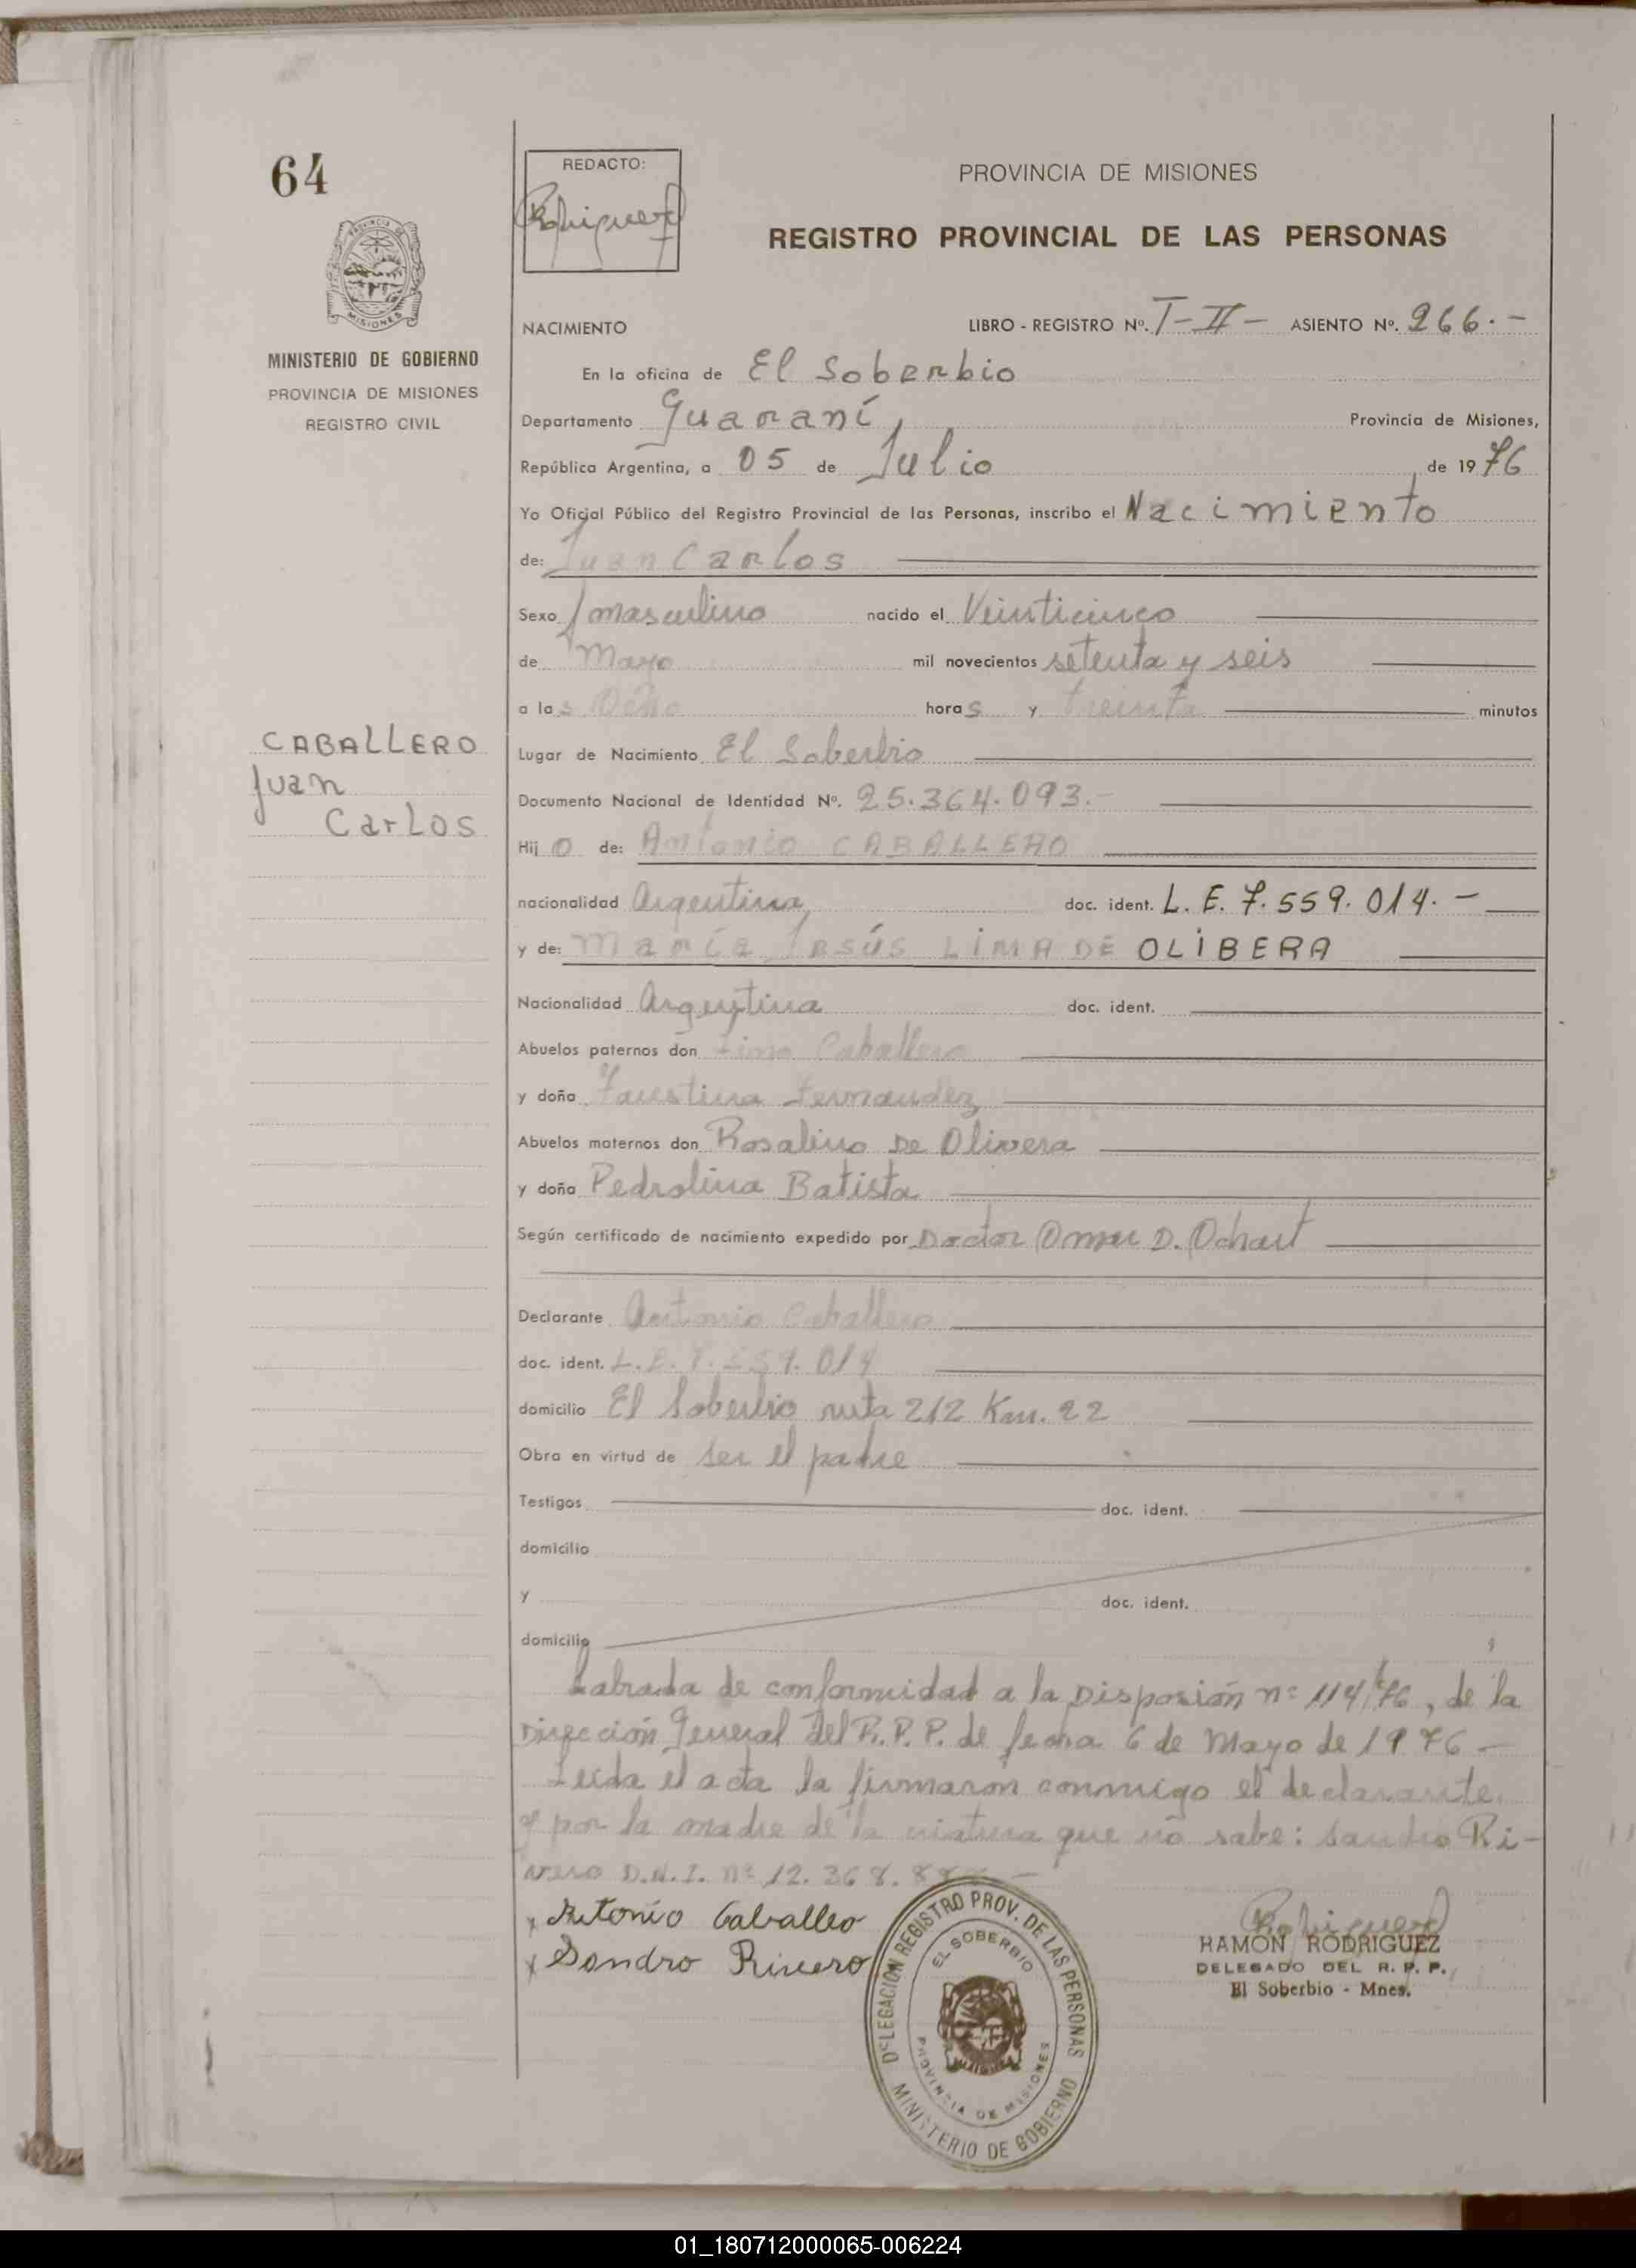 64
REDACTO:
Rodriguez
PROVINCIA DE MISIONES
REGISTRO PROVINCIAL DE LAS PERSONAS
MISIONES
MINISTERIO DE GOBIERNO
PROVINCIA DE MISIONES
REGISTRO CIVIL
NACIMIENTO
LIBRO - REGISTRO Nº. T-II- ASIENTO Nº. 266.-
En la oficina de El Soberbio
Departamento Guaraní, Provincia de Misiones,
República Argentina, a 05 de Julio de 1976
Yo Oficial Público del Registro Provincial de las Personas, inscribo el Nacimiento
de: Juan Carlos
Sexo masculino nacido el Veinticinco
de Mayo mil novecientos setenta y seis
a las Ocho horas y treinta minutos
CABALLERO
Juan
Carlos
Lugar de Nacimiento El Soberbio
Documento Nacional de Identidad Nº. 25.364.093.-
Hijo de: Antonio CABALLERO
nacionalidad Argentina doc. ident. L. E. 7.559.014.-
y de: María Jesús LIMA DE OLIBERA
Nacionalidad Argentina doc. ident.
Abuelos paternos don Caballero
y doña Faustina Fernandez
Abuelos maternos don Rosalino De Olivera
y doña Pedrolina Batista
Según certificado de nacimiento expedido por Doctor Omar D. Ochart
Declarante Antonio Caballero
doc. ident. L.E. 7.559.014
domicilio El Soberbio ruta 212 Km. 22
Obra en virtud de ser el padre
Testigos doc. ident.
domicilio
y doc. ident.
domicilio
Labrada de conformidad a la Disposión nº 114/76, de la
Dirección General del R.P.P. de fecha 6 de Mayo de 1976-
Leída el acta la firmaron conmigo el declarante
y por la madre de la criatura que no sabe: Sandro Ri-
vero D.N.I. nº 12.368.
x Antonio Caballeo
x Sandro Rivero
DELEGACION REGISTRO PROV. DE LAS PERSONAS
EL SOBERBIO
PROVINCIA DE MISIONES
MINISTERIO DE GOBIERNO
Rodriguez
RAMON RODRIGUEZ
DELEGADO DEL R. P. P.
El Soberbio - Mnes.
01_180712000065-006224